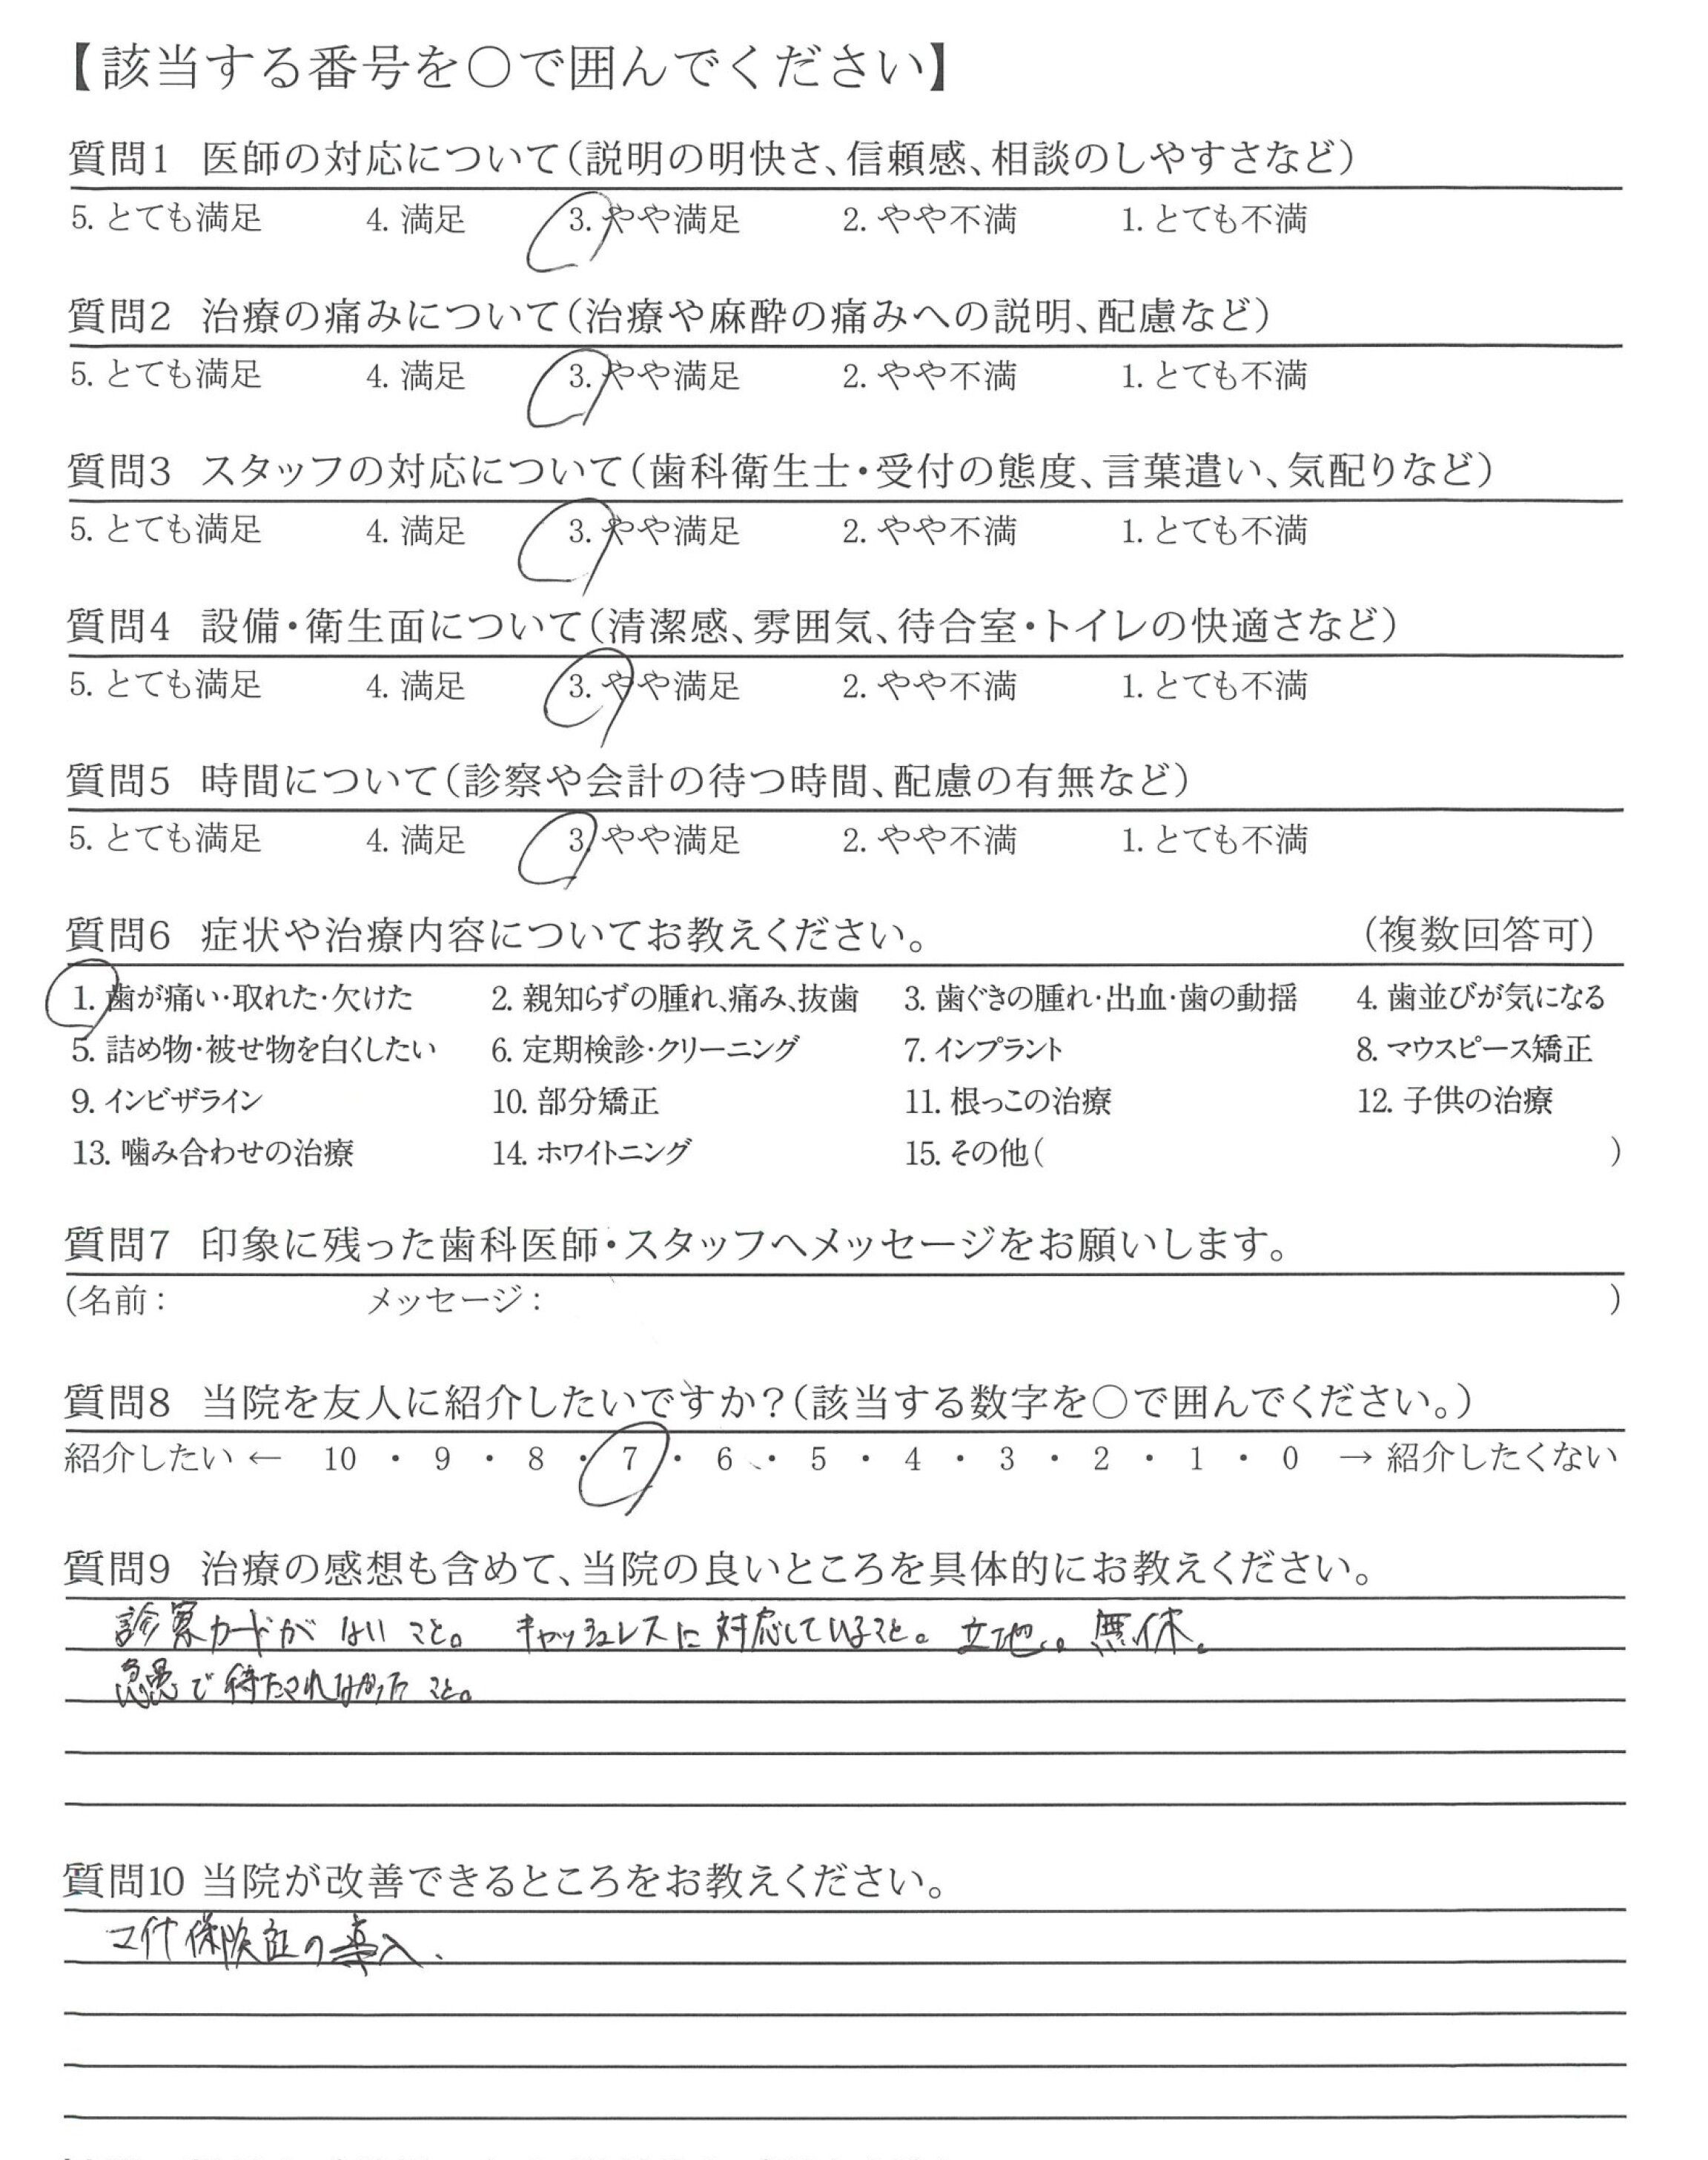 【該当する番号を〇で囲んでください】
質問1 医師の対応について(説明の明快さ、信頼感、相談のしやすさなど)
5. とても満足 4. 満足 3. やや満足 2. やや不満 1. とても不満
質問2 治療の痛みについて(治療や麻酔の痛みへの説明、配慮など)
5. とても満足 4. 満足 3. やや満足 2. やや不満 1. とても不満
質問3 スタッフの対応について(歯科衛生士・受付の態度、言葉遣い、気配りなど)
5. とても満足 4. 満足 3. やや満足 2. やや不満 1. とても不満
質問4 設備・衛生面について(清潔感、雰囲気、待合室・トイレの快適さなど)
5. とても満足 4. 満足 3. やや満足 2. やや不満 1. とても不満
質問5 時間について(診察や会計の待つ時間、配慮の有無など)
5. とても満足 4. 満足 3. やや満足 2. やや不満 1. とても不満
質問6 症状や治療内容についてお教えください。 (複数回答可)
1. 歯が痛い・取れた・欠けた 2. 親知らずの腫れ、痛み、抜歯 3. 歯ぐきの腫れ・出血・歯の動揺 4. 歯並びが気になる
5. 詰め物・被せ物を白くしたい 6. 定期検診・クリーニング 7. インプラント 8. マウスピース矯正
9. インビザライン 10. 部分矯正 11. 根っこの治療 12. 子供の治療
13. 噛み合わせの治療 14. ホワイトニング 15. その他( )
質問7 印象に残った歯科医師・スタッフへメッセージをお願いします。
(名前: メッセージ: )
質問8 当院を友人に紹介したいですか?(該当する数字を〇で囲んでください。)
紹介したい ← 10 ・ 9 ・ 8 ・ 7 ・ 6 ・ 5 ・ 4 ・ 3 ・ 2 ・ 1 ・ 0 → 紹介したくない
質問9 治療の感想も含めて、当院の良いところを具体的にお教えください。
診察カードがないこと。 キャッシュレスに対応していること。 立地。 無休。
急患で待たされなかったこと。
質問10 当院が改善できるところをお教えください。
マイナ保険証の導入.